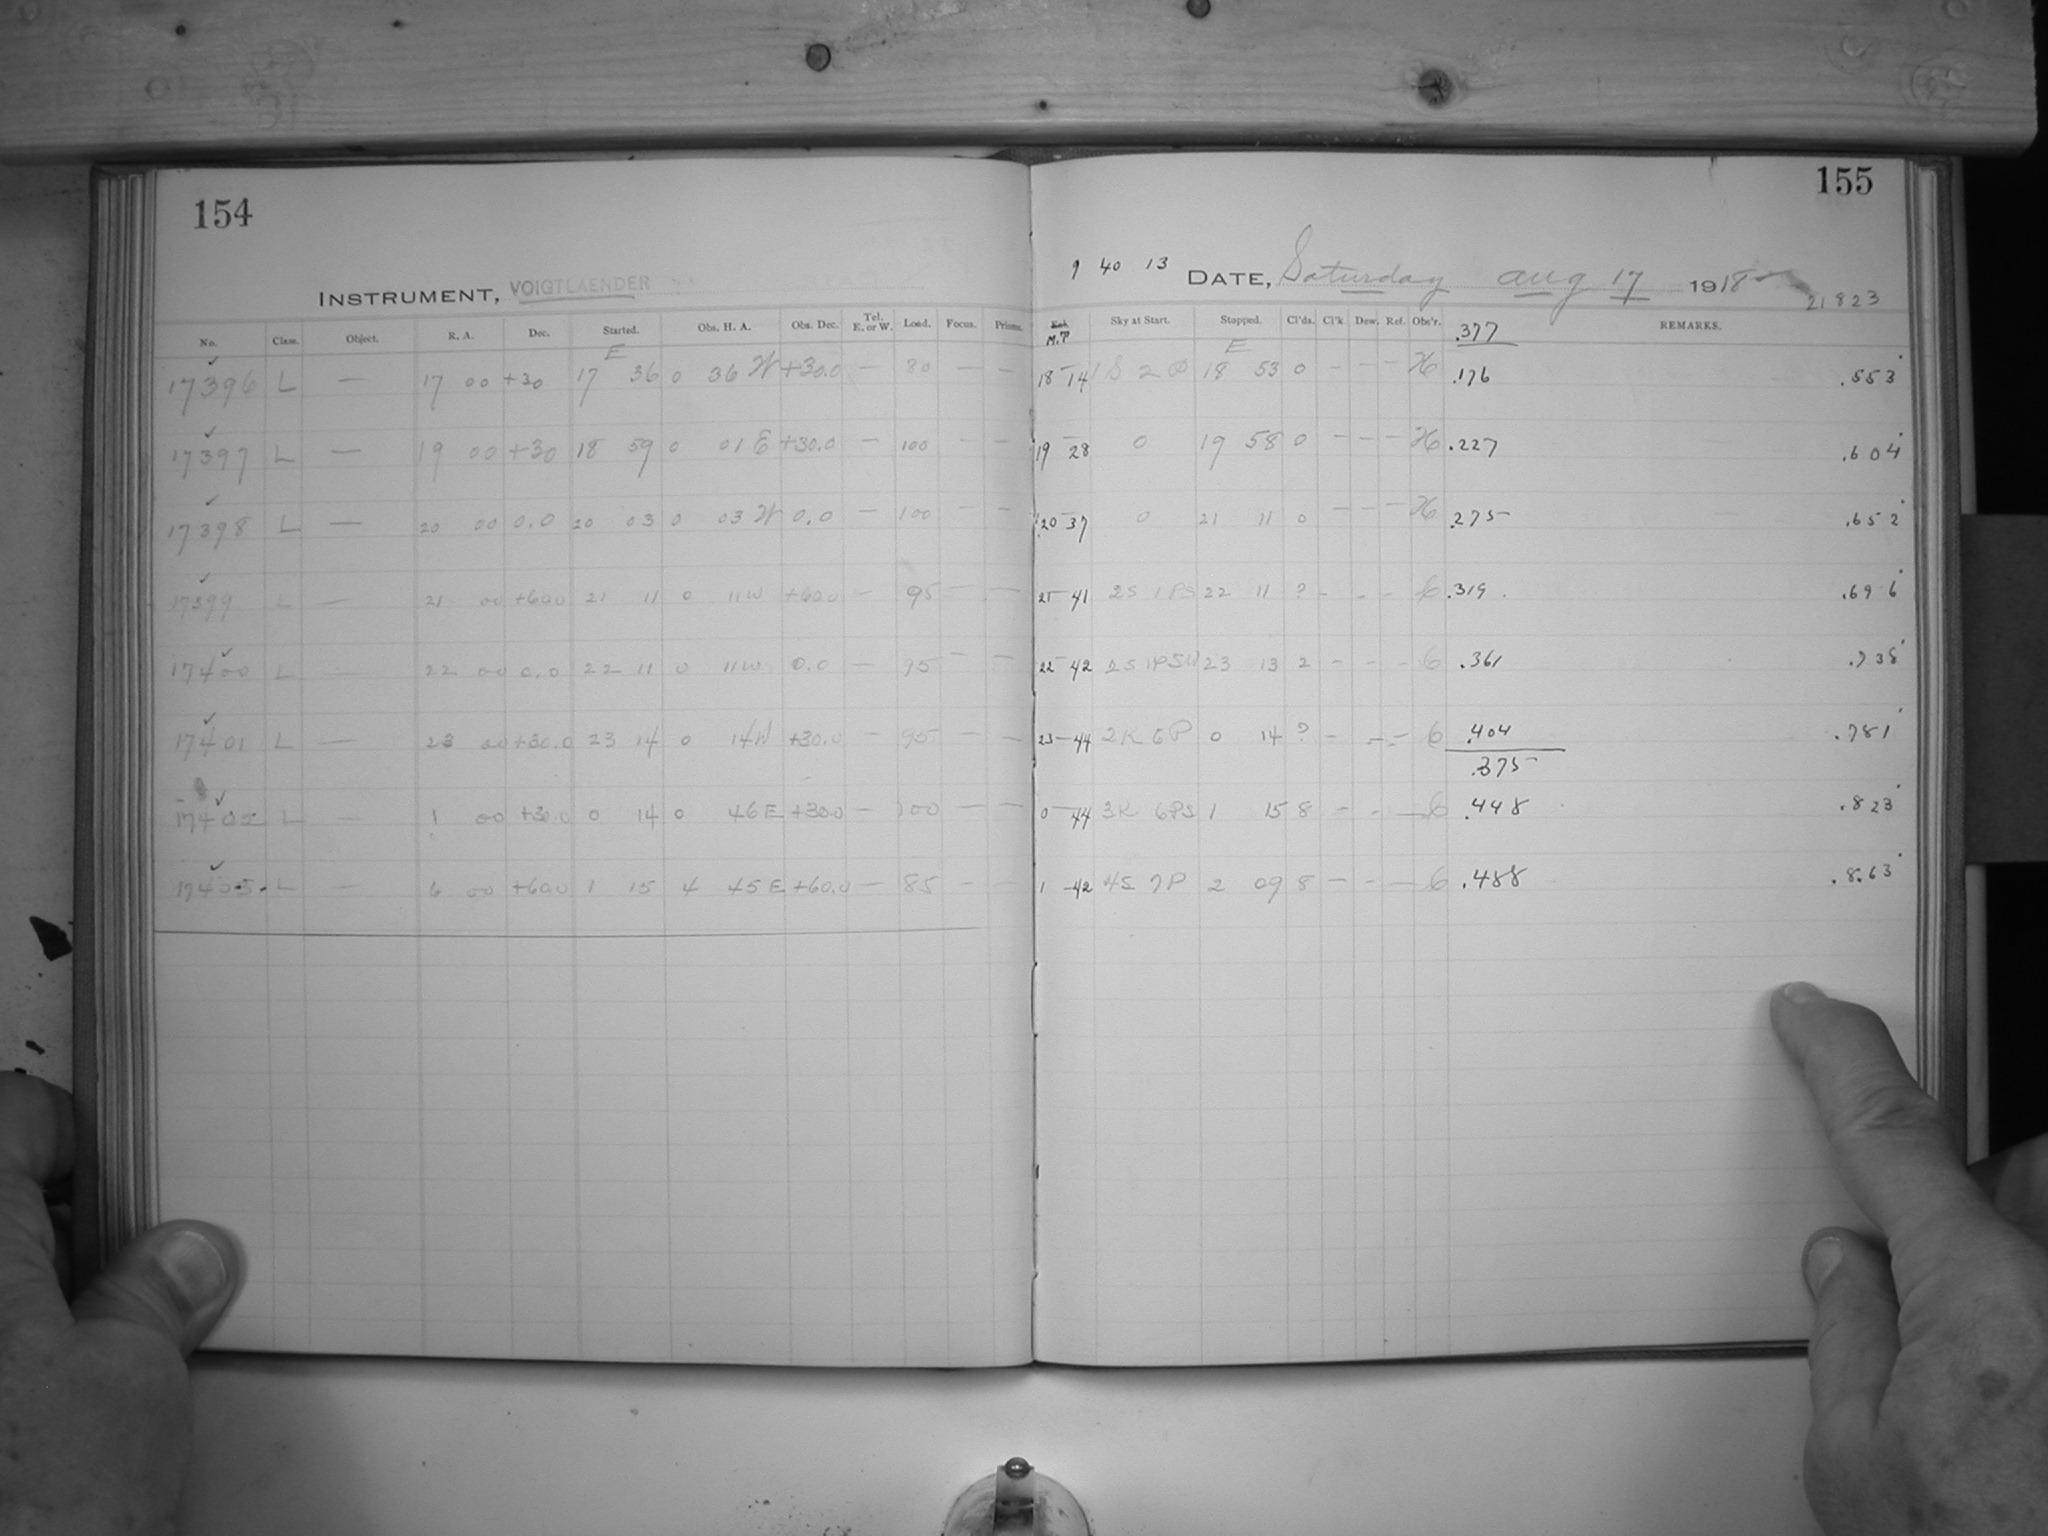 154
INSTRUMENT, VOIGTLAENDER
No. Class. Object. R. A. Dec. Started. Obs. H. A. Obs. Dec. Tel. E. or W. Load. Focus. Prisms.
17396 L — 17 00 +30 E 17 36 0 36 W +30.0 — 80 — —
17397 L — 19 00 +30 18 59 0 01 E +30.0 — 100 — —
17398 L — 20 00 0.0 20 03 0 03 W 0.0 — 100 — —
17399 L — 21 00 +60.0 21 11 0 11W +60.0 — 95 — —
17400 L — 22 00 0.0 22 11 0 11W 0.0 — 95 — —
17401 L — 23 00 +30.0 23 14 0 14W +30.0 — 95 — —
L — 1 00 +30.0 0 14 0 46E +30.0 — 100 — —
L — 6 00 +60.0 1 15 4 45E +60.0 — 85 — —
155
9 40 13 DATE, Saturday Aug 17 1918
21823
M.P. Sky at Start. Stopped. Cl'ds. Cl'k Dew. Ref. Obs'r. .377 REMARKS.
18 14 1S 2P E 18 53 0 — — — H .176 .553
19 28 0 19 58 0 — — — H .227 .604
20 37 0 21 11 0 — — — H .275 .652
21 41 2S 1PS 22 11 ? - - - 6 .319 .696
22 42 2S 1PSW 23 13 2 - - - 6 .361 .738
23 44 2K 6P 0 14 ? - - - 6 .404 .781
.375
0 44 3K 6PS 1 15 8 - - — 6 .448 .823
1 42 4S 7P 2 09 8 — - — 6 .488 .863